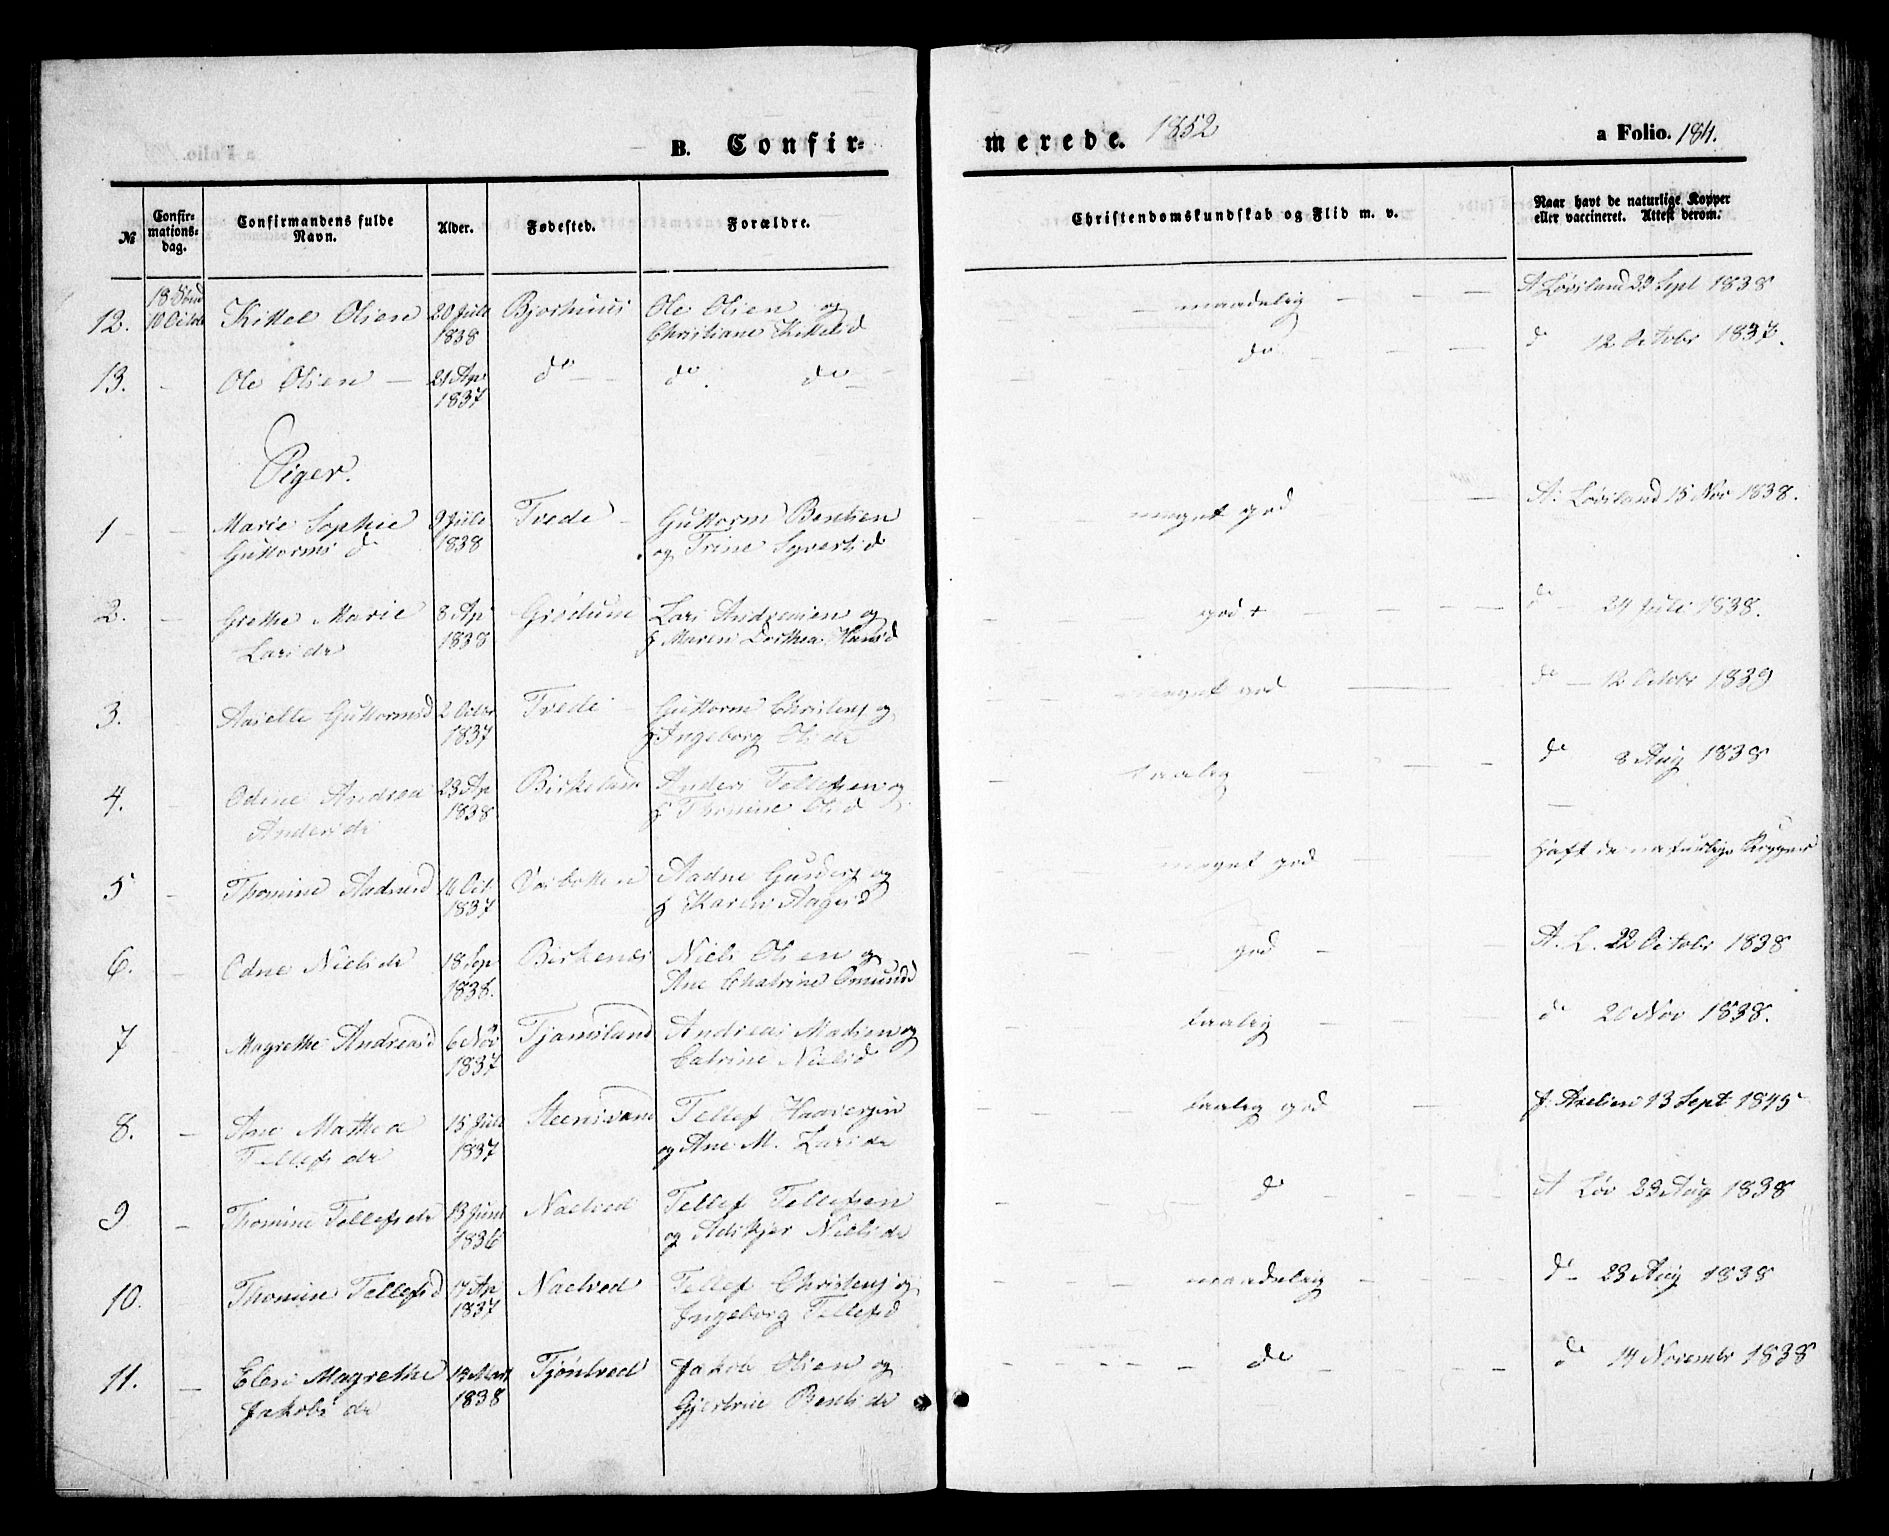 B. Confirmerede. 1852
a Folio. 184.
№
Confirmationsdag.
Confirmandens fulde Navn.
Alder.
Fødested.
Forældre.
Christendomskundskab og Flid m. v.
Naar havt de naturlige Kopper eller vaccineret. Attest derom.
12. 18 Sønd 10 Octob Kittel Olsen 20 Juli 1838 Ole Olsen og Christiane Kittelsd maadelig A Løvsland 23 Sept 1838
13. - Ole Olsen - 21 Ap 1837 do do do do d 12 Octobr 1837.
Piger.
1 - - Marie Sophie Guttormsd 9 Juli 1838 Tvede Guttorm Bentsen og Trine Syvertsd meget god A. Løvsland 15 Nov 1838.
2. - Grethe Marie Larsdr 8 Ap 1838 Grødum Lars Andersen og Maren Dorthea Hansd god + d 24 Juli 1838.
3. - Guttormsd 2 Octbr 1837 Tvede Guttorm Christens og Ingeborg Olsdr meget god do 12 Octobr 1839
4. - Odine Andrea Andersdr 23 Ap 1838 Birkeland Anders Tellefsen og Thomine Olsd taalig do 8 Aug 1838
5 - Thomine Aadnesd 16 Oct 1837 Aadne og Karen Aagesd meget god Haft de naturlige Kopper
6. - Odne Nielsdr 18 Sep 1838. Birkenes Niels Olsen og Ane Chatrine Omundsd god A. L. 22 Octobr 1838
7 - Magrethe Andreasd 6 Nov 1837 Tjomsland Andreas Madsen og Catrine Nielsd taalig do 20 Nov 1838.
8. - Ane Mathea Tellefsdr 15 Juli 1837 Steensvand Tellef og Ane M. Larsdr taalig god J. Axelsen 13 Sept 1845
9 - Thomine Tellefsdr 13 Juni 1836 Naelved Tellef Tellefsen og Nielsdr d A Løv 23 Aug 1838
10. - Thomine Tellefsd 17 Ap 1837 Naelved Tellef Christens og Ingeborg Tellefsd maadelig do 23 Aug 1838
11. - Magrethe Jakobsdr 1838 Jakob Olsen og Gjertrine Bentsdr do do 14 Novembr 1838